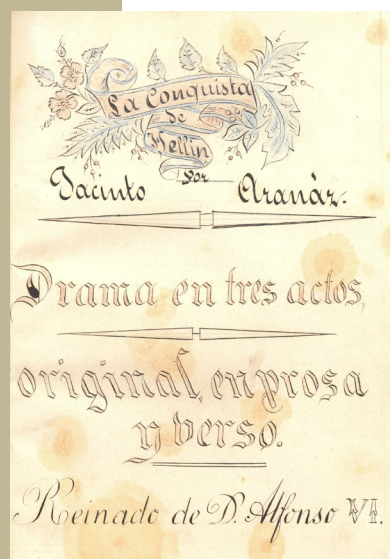 La Conquista
de
Hellín
por
Jacinto Aranáz.
Drama en tres actos,
original, en prosa
y verso.
Reinado de D. Alfonso VI.